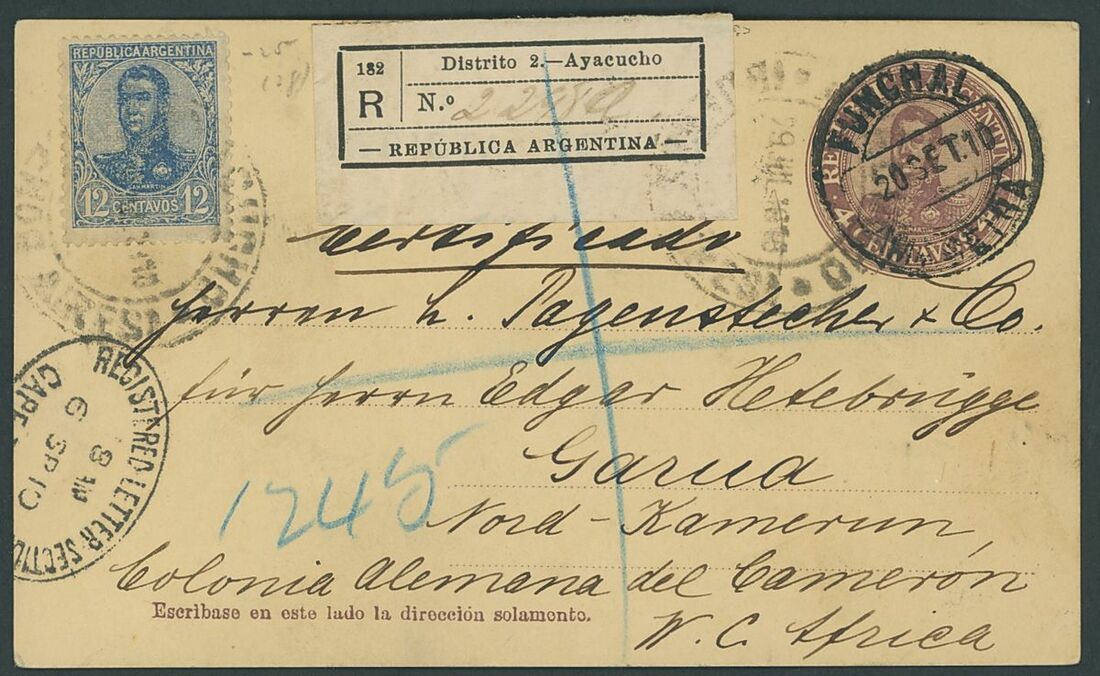 REPÚBLICA ARGENTINA
SAN MARTIN
12 CENTAVOS 12
182
R
Distrito 2.—Ayacucho
N.º 22480
— REPÚBLICA ARGENTINA —
FUNCHAL
20 SET. 10
certificado
Herren L. Pagenstecher & Co.
für Herrn Edgar Hetebrügge
Garua
Nord-Kamerun,
Colonia Alemana del Camerón
W. C. Africa
1245
REGISTERED LETTER SECTIO
CAPE
8 AM
6 SP 10
Escribase en este lado la dirección solamente.